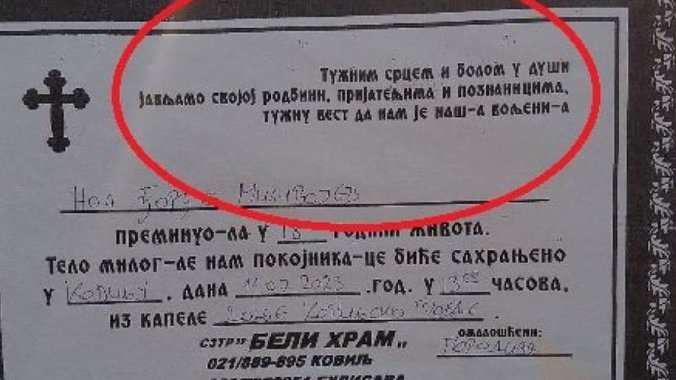 Тужним срцем и болом у души
јављамо својој родбини, пријатељима и познаницима,
тужну вест да нам је наш-а вољени-а
преминуо-ла у 18 години живота.
Тело милог-ле нам покојника-це биће сахрањено
у Ковиљу, дана 11.07.2023 .год. у 13⁰⁰ часова.
из капеле
ожалошћени:
СЗТР" БЕЛИ ХРАМ „
ПОРОДИЦА
021/889-895 КОВИЉ